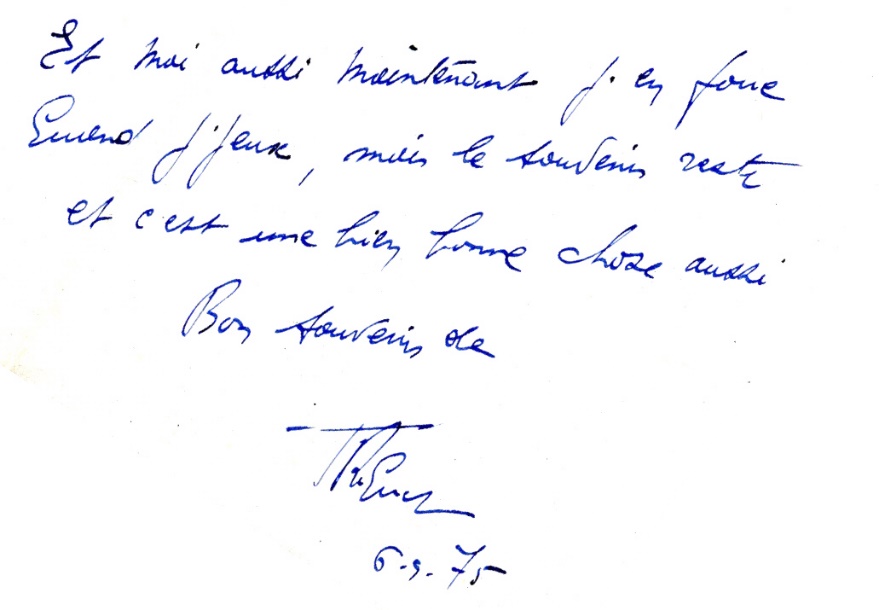 Et moi aussi maintenant j. en
, mais le souvenir reste
et c'est une bien bonne chose aussi
Bon souvenir de
6-9-75